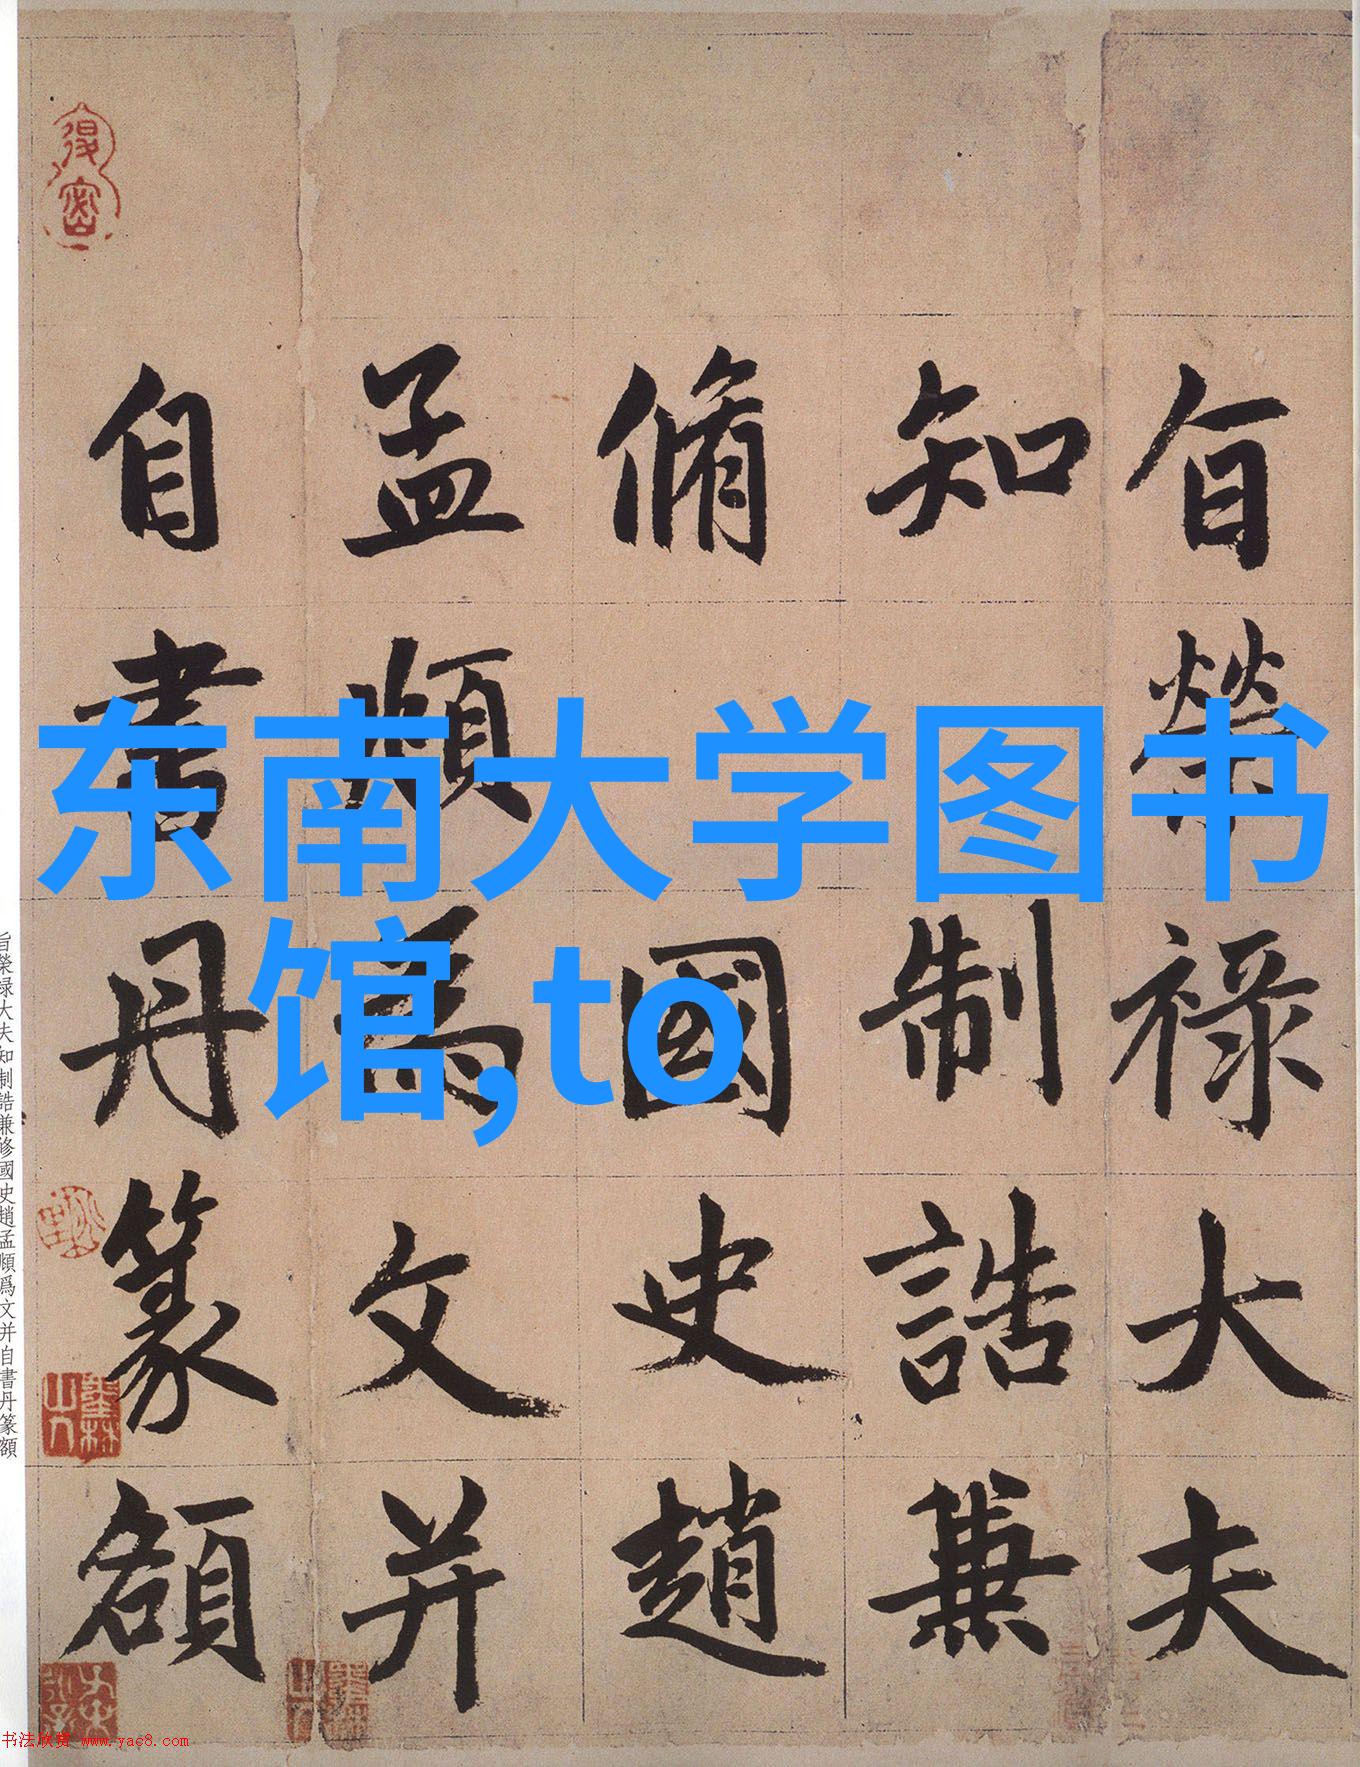 旨榮祿大夫
知制誥兼
脩國史趙
孟頫為文并
自書丹篆額
东南大学图书
馆,to
旨榮禄大夫知制誥兼修國史趙孟頫爲文并自書丹篆額
书法欣赏 www.yac8.com